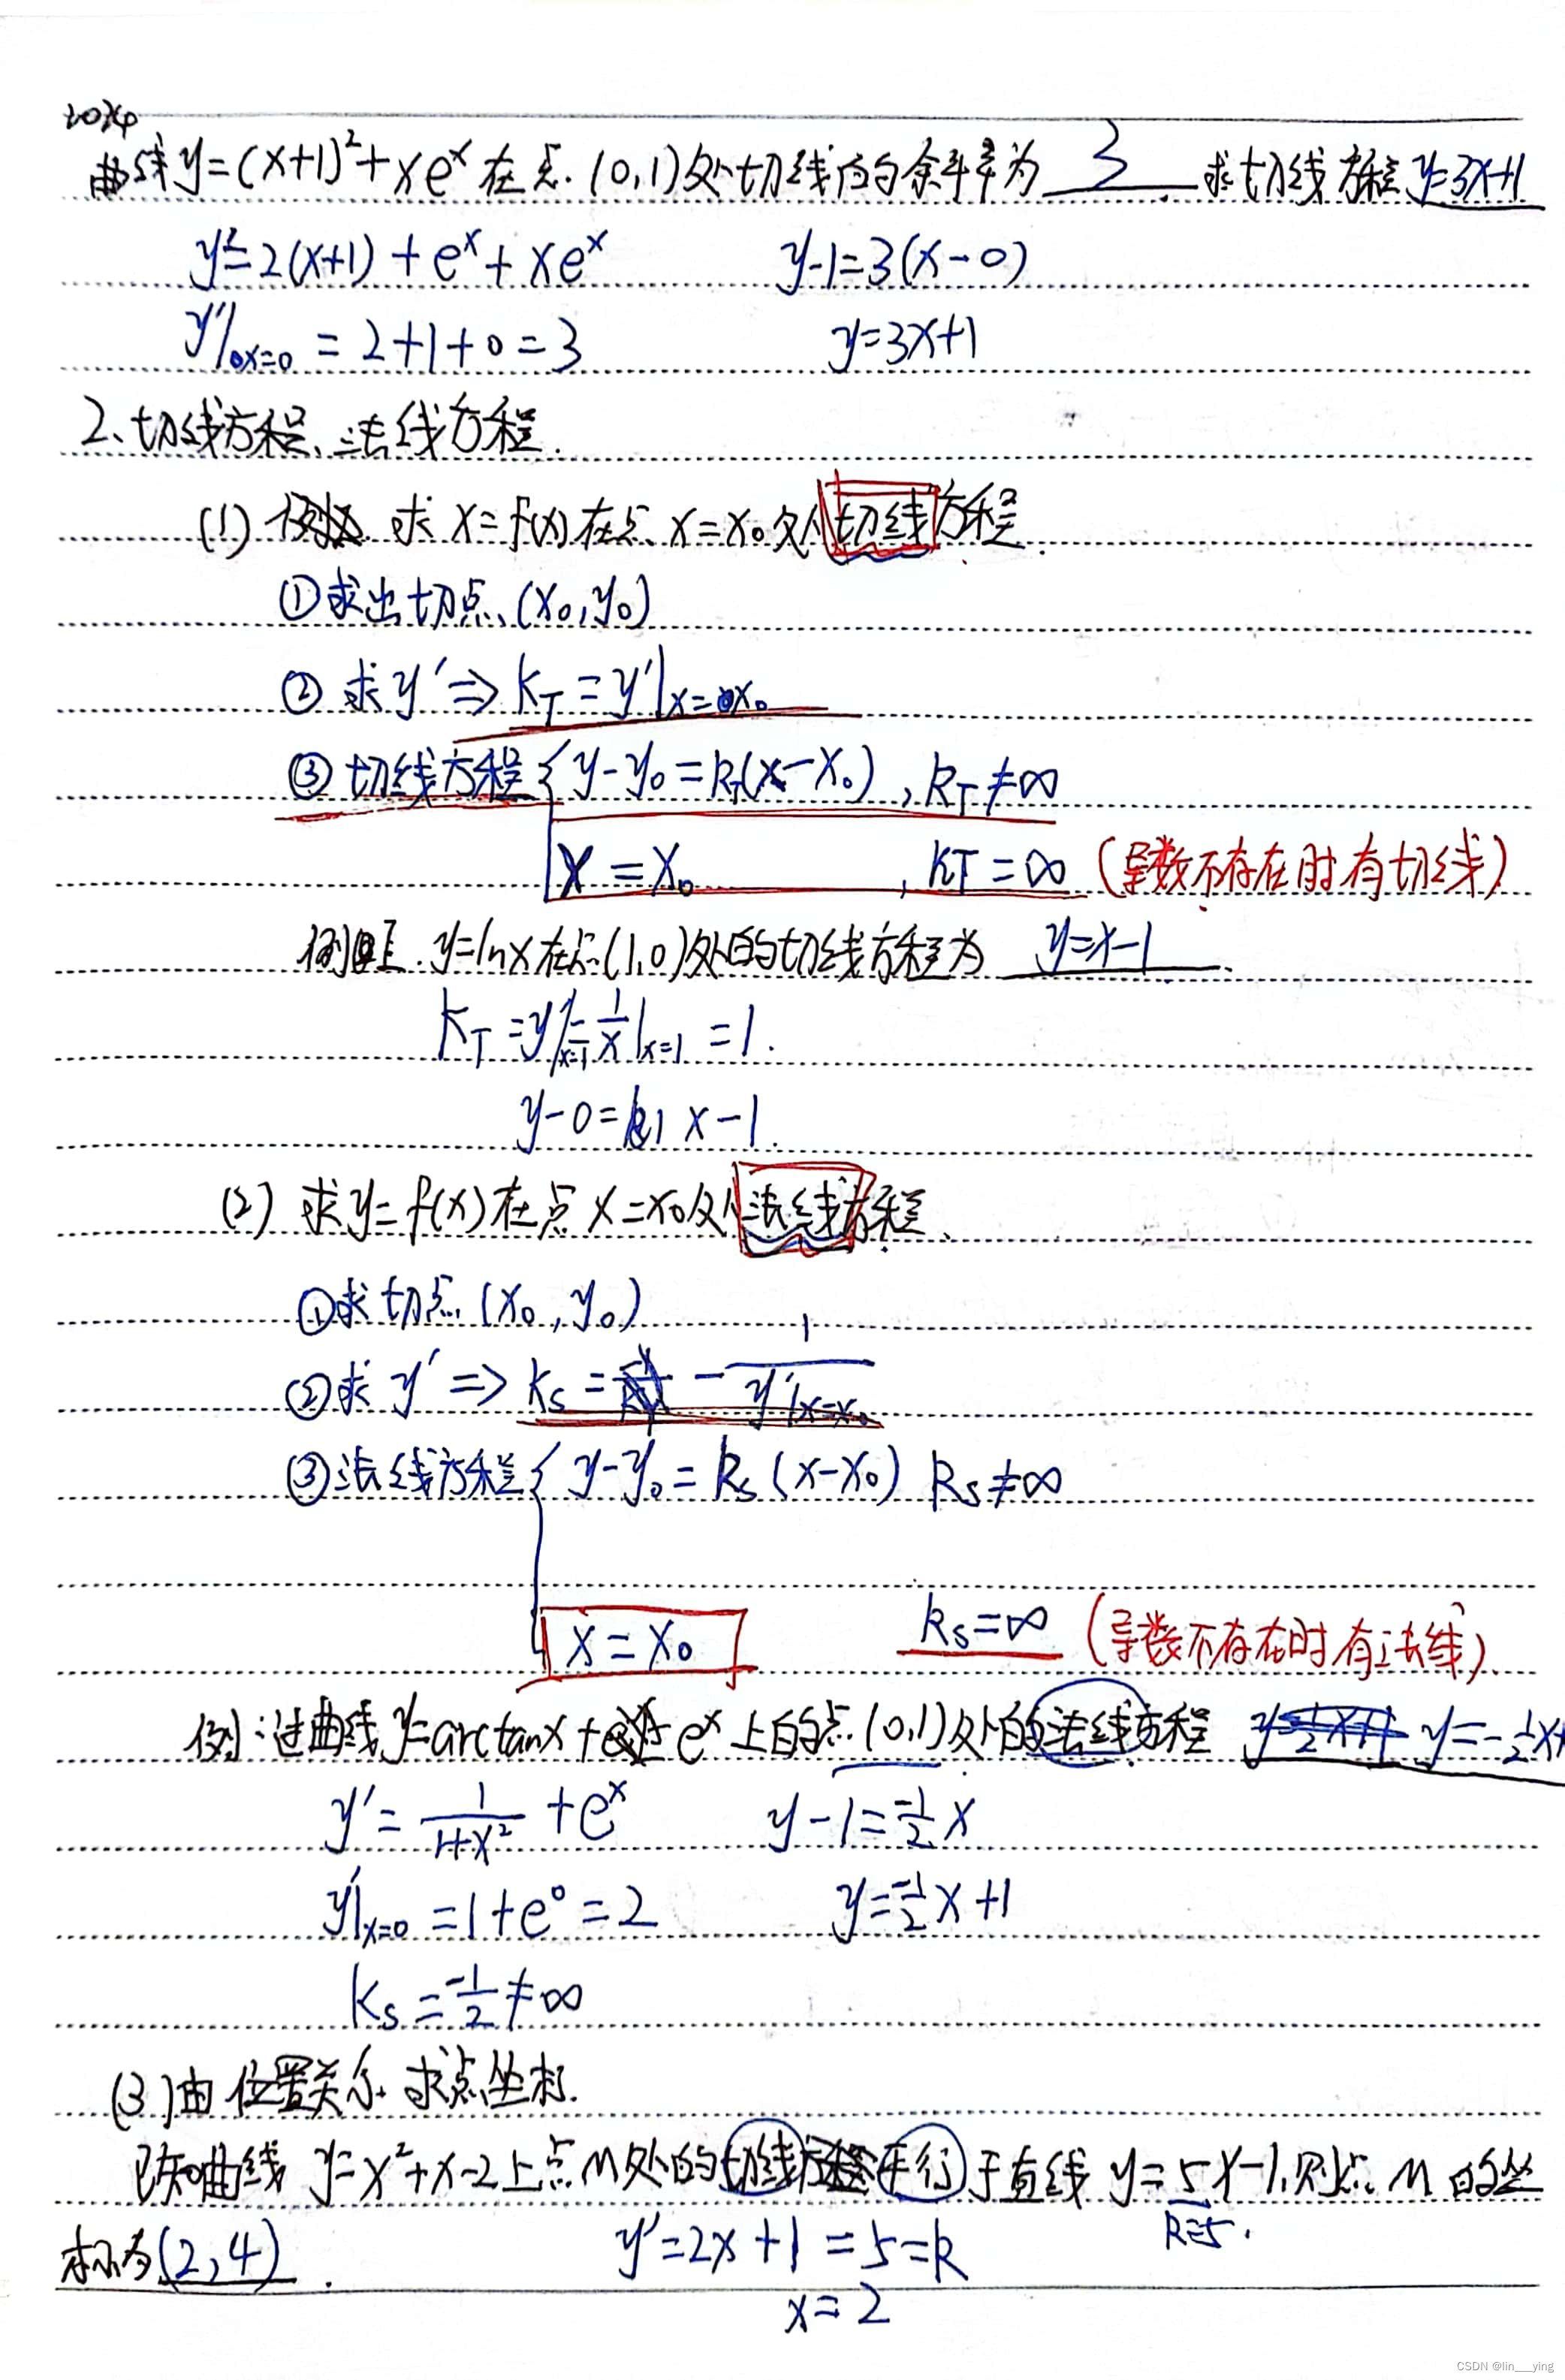 2024
曲线y=(x+1)²+xeˣ在点(0,1)处切线的斜率为 3 . 求切线方程y=3x+1
y'=2(x+1)+eˣ+xeˣ y-1=3(x-0)
y'|x=0 =2+1+0=3 y=3x+1
2、切线方程、法线方程.
(1) 求x=f(x)在点x=x₀处切线方程.
①求出切点(x₀,y₀)
②求y'⇒k_T=y'|x=x₀
③切线方程{y-y₀=k_T(x-x₀), k_T≠∞
x=x₀ , kT=∞ (导数不存在时有切线)
例 y=lnx在点(1,0)处的切线方程为 y=x-1 .
k_T=y'|x=1=1/x|x=1 =1.
y-0= x-1.
(2) 求y=f(x)在点x=x₀处法线方程.
①求切点(x₀,y₀)
②求y'⇒k_s= -1/y'|x=x₀
③法线方程{y-y₀=k_s(x-x₀) k_s≠∞
x=x₀ k_s=∞ (导数不存在时有法线).
例:过曲线y=arctanx+eˣ上的点(0,1)处的法线方程 y=-1/2x+
y'=1/(1+x²)+eˣ y-1=-1/2x
y'|x=0=1+e⁰=2 y=-1/2x+1
k_s=-1/2≠∞
(3)由位置关系求点坐标.
已知曲线y=x²+x-2上点M处的切线平行于直线y=5x-1,则点M的坐
k=5.
标为(2,4). y'=2x+1=5=k
x=2
CSDN @lin___ying